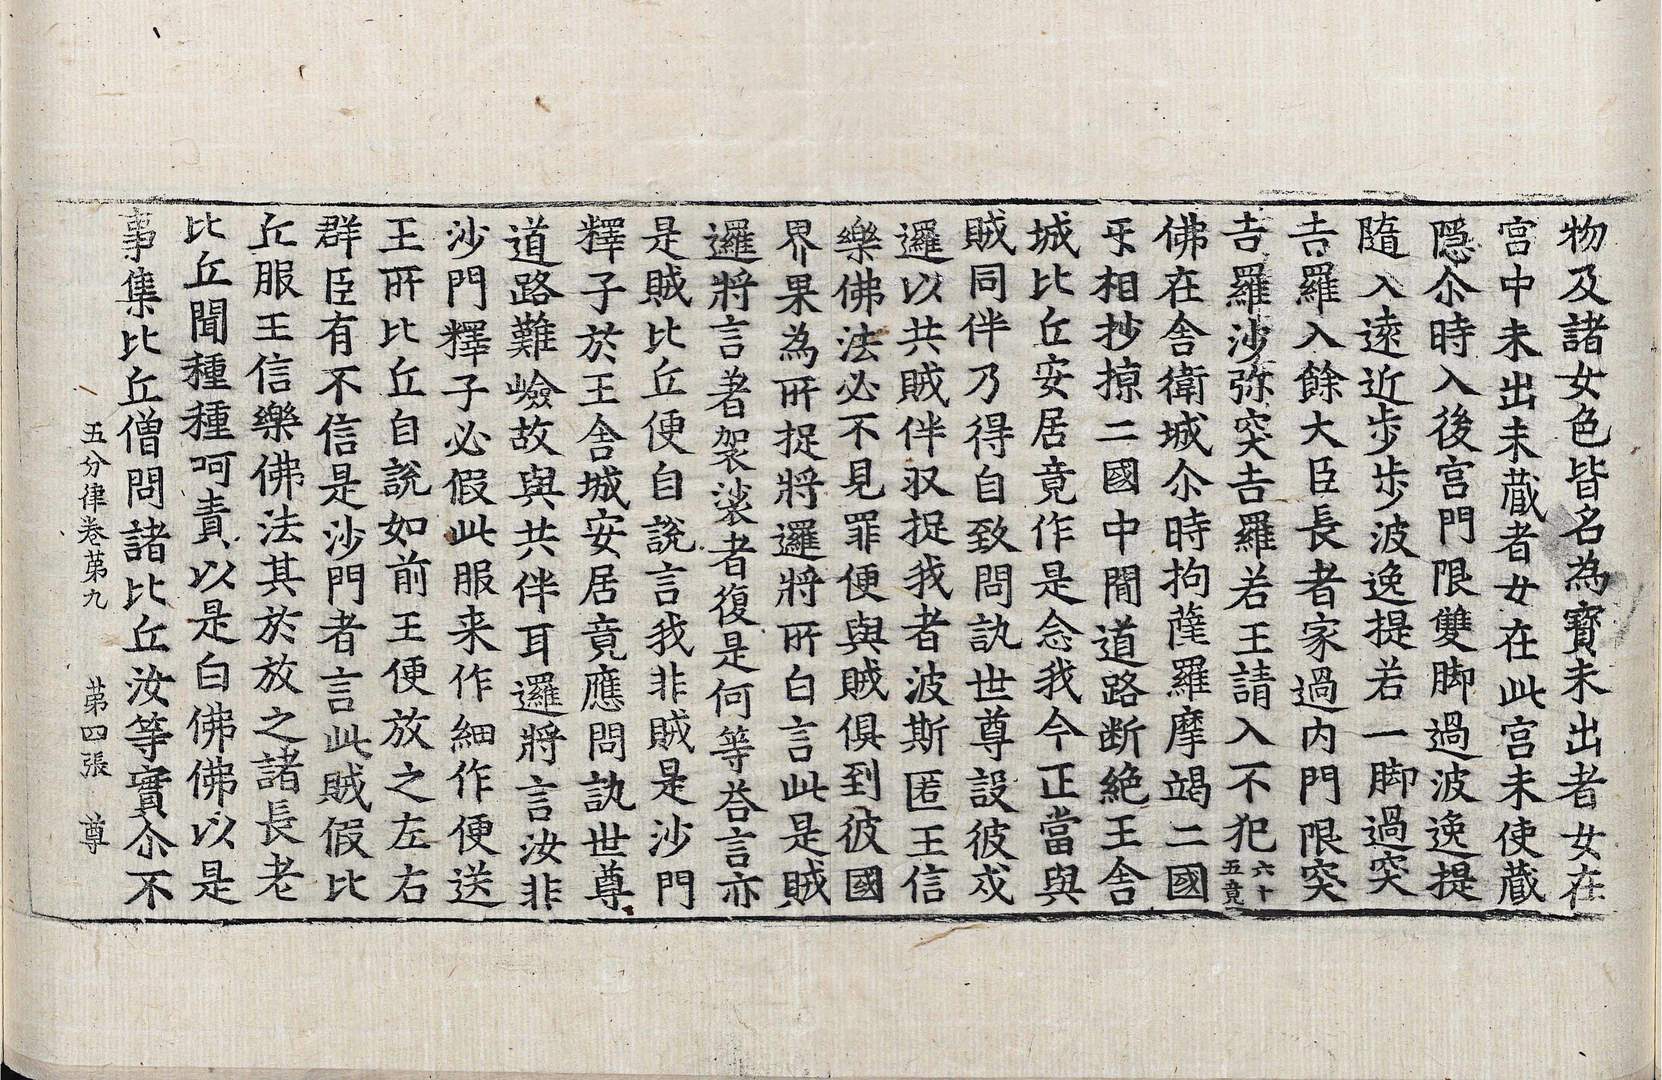 物及諸女色皆名為寶未出者女在
宮中未出未蔵者女在此宮未使蔵
隱尒時入後宮門限雙脚過波逸提
隨入遠近步步波逸提若一脚過突
吉羅入餘大臣長者家過內門限突
吉羅沙弥突吉羅若王請入不犯六十五竟
佛在舎衛城尒時拘薩羅摩竭二國
互相抄掠二國中間道路断絶王舎
城比丘安居竟作是念我今正當與
賊同伴乃得自致問訊世尊設彼或
邏以共賊伴収捉我者波斯匿王信
樂佛法必不見罪便與賊俱到彼國
界果為所捉將邏將所白言此是賊
邏將言著袈裟者復是何等荅言亦
是賊比丘便自說言我非賊是沙門
釋子於王舎城安居竟應問訊世尊
道路難嶮故與共伴耳邏將言汝非
沙門釋子必假此服来作細作便送
王所比丘自說如前王便放之左右
群臣有不信是沙門者言此賊假比
丘服王信樂佛法其於放之諸長老
比丘聞種種呵責以是白佛佛以是
事集比丘僧問諸比丘汝等實尒不
五分律卷苐九 苐四張 尊